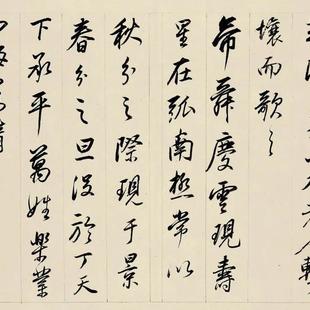 老人擊
壤而歌之
帝舜慶雲現壽
星在弧南極常以
秋分之際現于景
春分之旦没於丁天
下承平萬姓樂業